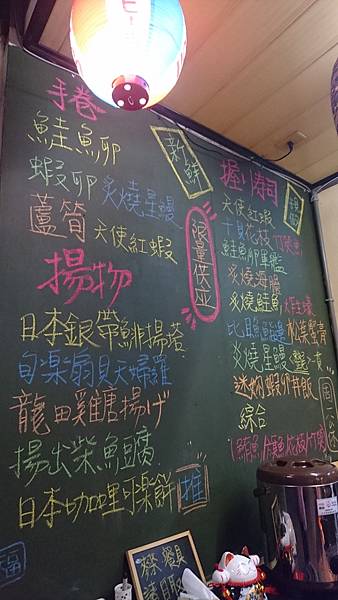 手卷
鮭魚卵
蝦卵 炙燒星鰻
蘆筍 天使紅蝦
揚物
日本銀帶鯡揚若
旬楽扇貝天婦羅
龍田雞塘揚げ
揚出柴魚腐
日本咖哩可楽餅 推
新鮮
限量供应
握壽司
天使紅蝦
干貝 花枝
鮭魚卵軍艦
炙燒海膽
炙燒鮭魚
比目魚鰭邊 松葉蟹膏
炙燒星鰻
迷你蝦卵丼飯
綜合